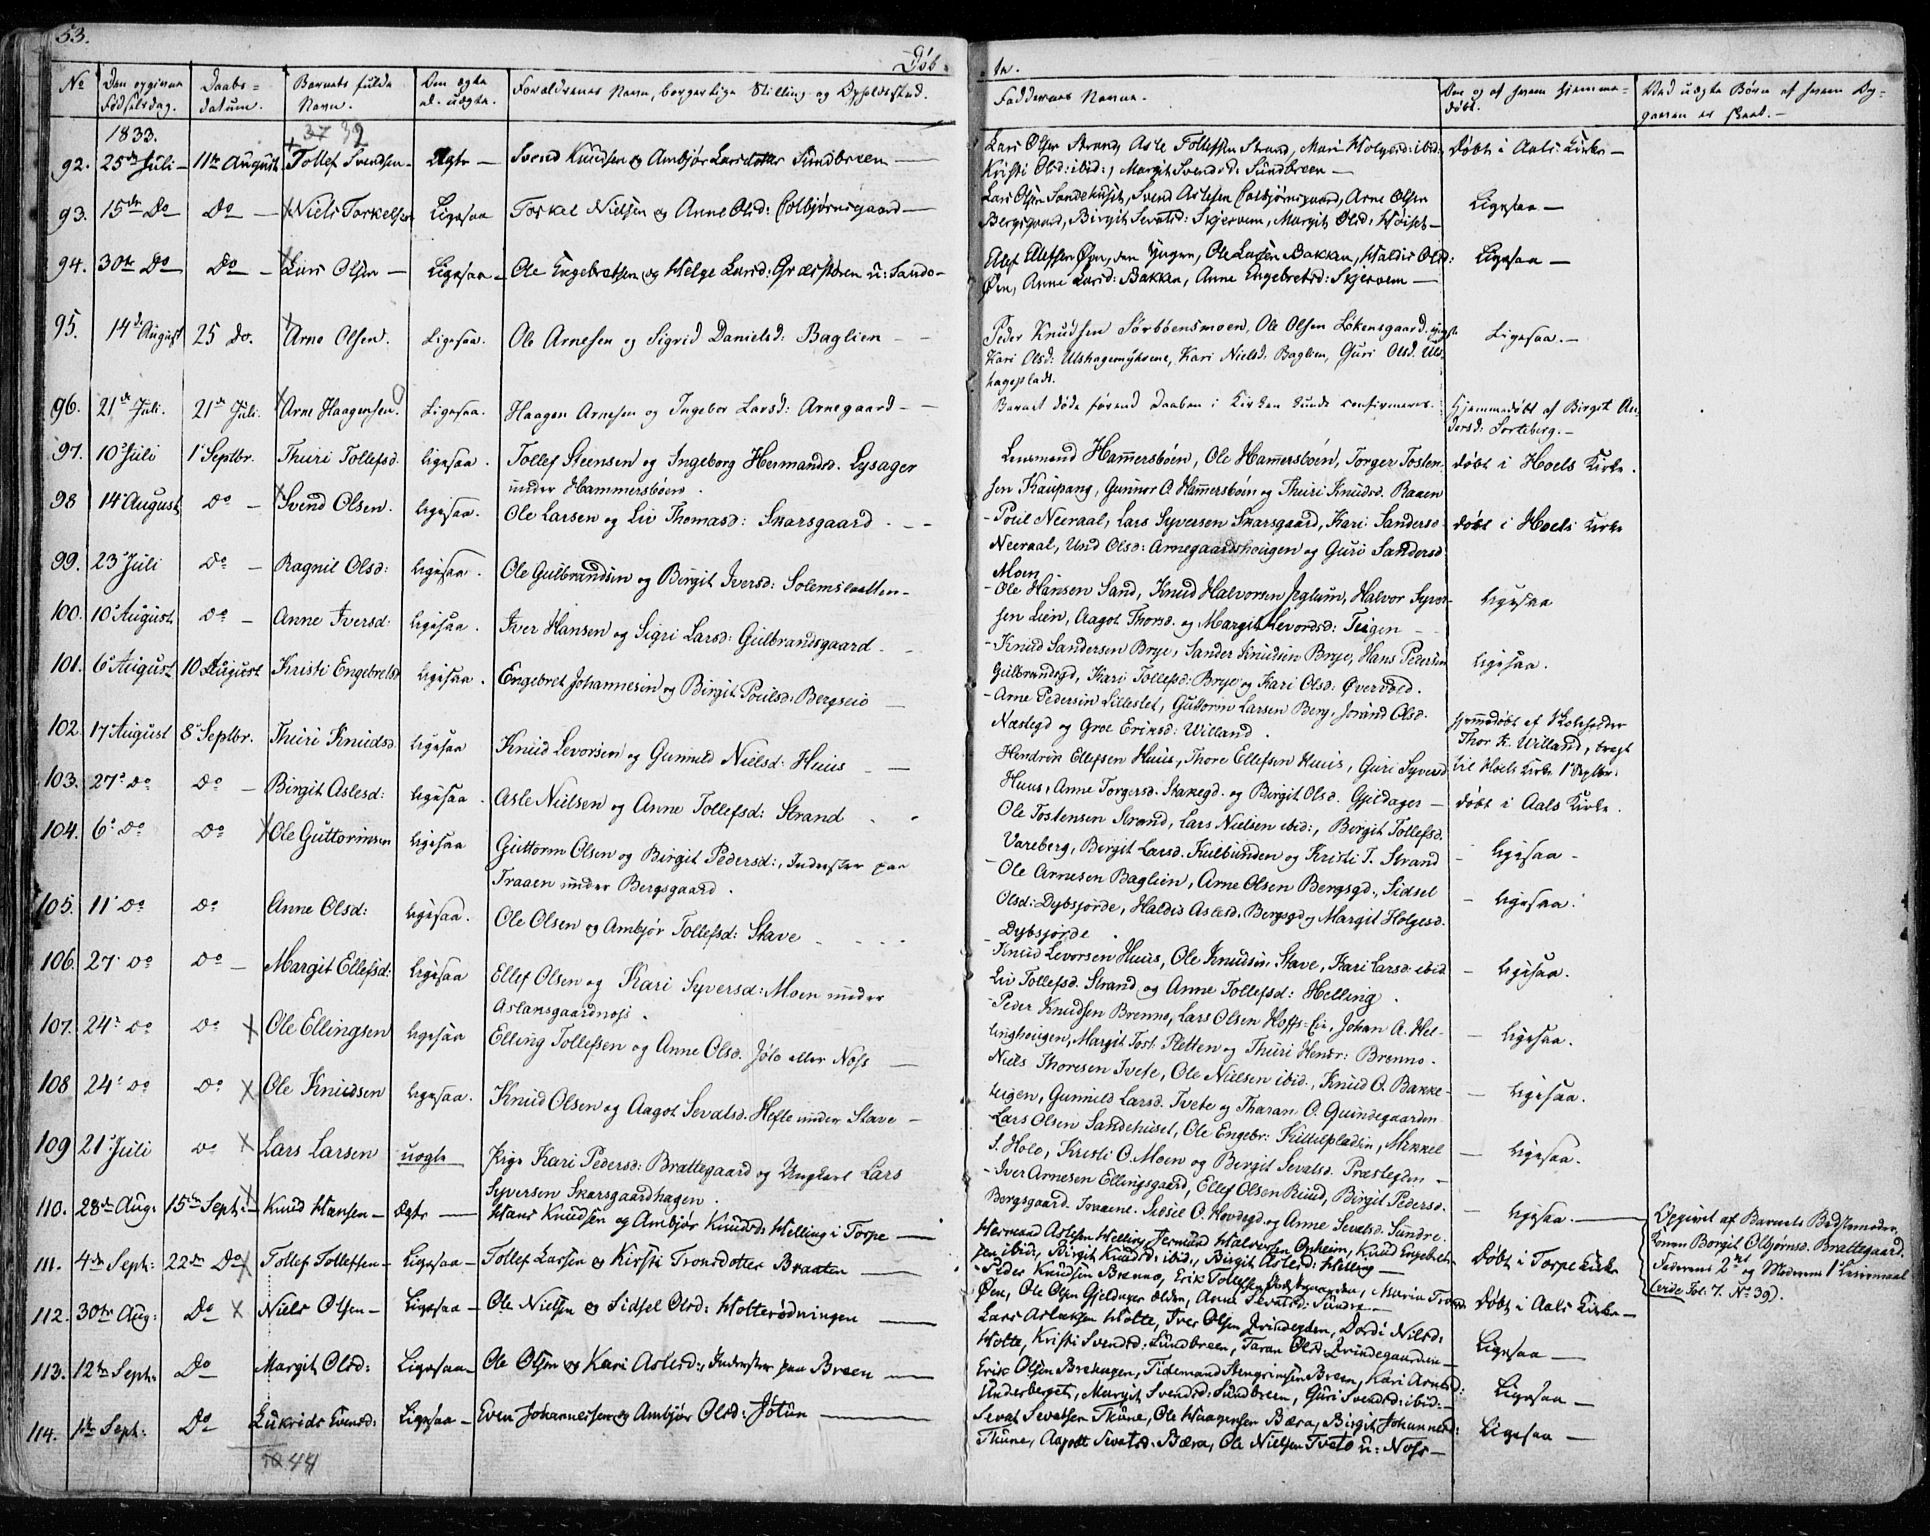 53.
Døb-
te.
No
Den opgivne Fødselsdag.
Daabs-datum.
Barnets fulde Navn.
Om ægte el. uægte.
Forældrenes Navn, borgerlige Stilling og Opholdssted.
Faddernes Navne.
Om og af hvem hjemme-døbt.
Ved uægte Børn af hvem Op-gaven er skeet.
1833.
37 39
92. 25de Juli 11te August Tollef Svendsen Ægte Svend Knudsen og Ambjør Larsdotter Sundbreen
Lars Olsen Strand, Asle Tollefsen Strand, Mari Holgersd: ibid:
Kristi Olsd: ibid:, Margit Svendsd: Sundbreen
Døbt i Aals Kirke
93. 15de Do Do Niels Torkelsen Ligesaa Torkel Nielsen og Anne Olsd: Colbjørnsgaard
Lars Olsen Sandehuset, Svend Aslesen Colbjørnsgaard, Arne Olsen
Bergsgaard, Birgit Sevatsd: Skjervem, Margit Olsd:
Ligesaa
94. 30te Do Do Lars Olsen Ligesaa Ole Engebretsen og Helge Larsd: Græsteren u: Sando
Ellef Ellefsen Øen, den yngre, Ole Larsen Bakken, Haldis Olsd:
Øen, Anne Larsd: Bakken, Anne Engebretsd: Skjervem
Ligesaa
95. 14de August 25 Do. Arne Olsen. Ligesaa. Ole Arnesen og Sigrid Danielsd: Baglien
Peder Knudsen Sørbøensmoen, Ole Olsen Løkensgaard
Kari Olsd: Ulshagemyhrene, Kari Nielsd: Baglien, Guri Olsd. Uls
hageplads.
Ligesaa.
96. 21de Juli. 21de Juli. Arne Haagensen. Ligesaa. Haagen Arnesen og Ingebor Larsd: Arnegaard
Barnet døde førend Daaben i Kirken kunde confirmeres.
Hjemmedøbt af Birgit An
dersd: Sorteberg.
97. 10 Juli 1 Septbr. Thuri Tollefsd. ligesaa. Tollef Steensen og Ingeborg Hermandsd. Lysager
under Hammersbøen.
Lensmand Hammersbøen, Ole Hammersbøen, Torger Tosten-
sen Kaupang, Gunnor O. Hammersbøen og Thuri Knudsd. Raaen
døbt i Hoels Kirke.
98 14 August Do Svend Olsen. ligesaa. Ole Larsen og Liv Thomasd: Skarsgaard
Poul Neeraal, Lars Syversen Skarsgaard, Kari Sandersd
Neeraal, Und Olsd: Arnegaardshougen og Guri Sandersd
Moen
døbt i Hoels Kirke
99. 23 Juli Do Ragnil Olsd: ligesaa. Ole Gulbrandsen og Birgit Iversd: Solemslaatten
Ole Hansen Sand, Knud Halvorsen Jeglum, Halvor Syver
sen Lien, Aagot Thorsd. og Margit Levordsd: Tuigen
ligesaa
100. 10 August. Do Anne Iversd: ligesaa. Iver Hansen og Sigri Larsd: Gulbrandsgaard
Knud Sandersen Brye, Sander Knudsen Brye, Hans Pedersen
Gulbrandsgd, Kari Tollefsd: Brye og Kari Olsd. Øvervold.
ligesaa.
101. 6 August 10 August Kristi Engebretsd ligesaa. Engebret Johannesen og Birgit Poulsd: Bergseie
Arne Pedersen Lilleslet, Guttorm Larsen Berg, Jorand Olsd.
Næstegd og Groe Eriksd: Willand.
hjemmedøbt af Skoleholder
Thor K. Willand, bragt
til Hoels Kirke 1 Septbr.
102. 17 August 8 Septbr. Thuri Knudsd. ligesaa Knud Levorsen og Gunnild Nielsd: Huus
Hendrik Ellefsen Huus, Thore Ellefsen Huus, Guri Syversd
Huus, Anne Torgersd. Stakegd. og Birgit Olsd. Gjeldager
døbt i Aals Kirke.
103. 27 Do Do Birgit Aslesd: ligesaa. Asle Nielsen og Anne Tollefsd: Strand
Ole Tostensen Strand, Lars Nielsen ibid:, Birgit Tollefsd.
Vareberg, Birgit Larsd. Kulbunden og Kristi T. Strand
ligesaa
104. 6 Do Do Ole Guttormsen ligesaa Guttorm Olsen og Birgit Pedersd:, Inderster paa
Traaen under Bergsgaard.
Ole Arnesen Baglien, Arne Olsen Bergsgd., Sidsel
Olsd: Dybsjorde, Haldis Aslesd. Bergsgd og Margit Holgesd.
Dybsjorde.
ligesaa.
105. 11 Do Do Anne Olsd: ligesaa. Ole Olsen og Ambjør Tollefsd: Stave
Knud Levorsen Huus, Ole Knudsen Stave, Kari Larsd ibid
Liv Tollefsd: Strand og Anne Tollefsd: Helling.
ligesaa.
106. 27 Do Do Margit Ellefsd: ligesaa Ellef Olsen og Kari Syversd: Moen under
Aslansgaardnoss.
Peder Knudsen Brenno, Lars Olsen Hoffs-Eie, Johan A. Hel-
linghougen, Margit Tost. Sletten og Thuri Hendr: Brenno.
ligesaa.
107. 24 Do Do Ole Ellingsen ligesaa Elling Tollefsen og Anne Olsd. Jølo eller Noss
Niels Thoresen Tvete, Ole Nielsen ibid., Knud O. Bakke-
teigen, Gunnild Larsd. Tvete og Tharan O. Quindegaarden
ligesaa.
108 24 Do Do Ole Knudsen ligesaa. Knud Olsen og Aagot Sevatsd. Hefte under Stave
Lars Olsen Sandehuset, Ole Engebr: Kittilpladsen, Mikkel
S. Holo, Kristi O. Moen og Birgit Sevatsd. Præstegden
ligesaa.
109 21 Juli Do Lars Larsen uægte Pige Kari Pedersd: Brattegaard og Ungkarl Lars
Syversen Skarsgaardhagen.
Iver Arnesen Ellingsgaard, Ellef Olsen Ruud, Birgit Pedersd.
Bergsgaard. Sidsel O. Hovdegd og Anne Sevatsd. Sundre.
ligesaa.
Opgivet af Barnets Bedstemoder,
Konen Borgit Olbjørnsd. Brattegaard.
Faderens 2det og Moderens 1ste Leiermaal
(vide Fol: 7. No 39).
110. 28de Aug: 15de Sept: Knud Hansen Ægte Hans Knudsen og Ambjør Knudsd: Helling i Torpe
Herman Aslesen Helling, Jermund Halvorsen Opheim, Knud Engebret-
sen ibid:, Birgit Knudsd: ibid:, Birgit Aslesd: Helling
Døbt i Torpe Kirke
111. 4de Sept: 22de Do Tollef Tollefsen Ligesaa Tollef Larsen og Kirsti Tronsdotter Braaten
Peder Knudsen Brenno, Erik Tollefsen
Øen, Ole Olsen Gjeldager ælden, Anne Sevatsd: Sundre
Døbt i Aals Kirke
112. 30te Aug: Do Niels Olsen Ligesaa Ole Nielsen og Sidsel Olsd: Holterødningen
Lars Aslaksen Holte, Iver Olsen Qvindegden, Dordi Nilsd:
Holte, Kristi Svendsd: Sundbreen, Taran Olsd: Qvindegaarden
Ligesaa
113. 12te Sept: Do Margit Olsd: Ligesaa Ole Olsen og Kari Aslesd:, Inderster paa Breen
Erik Olsen Brekagen, Tidemand Hengrimsen Breen, Kari Arnesd:
Underberget, Margit Svendsd: Sundbreen, Guri Svendsd: ibid:
Ligesaa
114. 1ste Sept: Do Lukrids Evensd: Ligesaa Even Johannesen og Ambjør Olsd: Jøtun
Sevat Sevatsen Thune, Ole Haagensen Bæra, Birgit Johannesd:
Thune, Aagodt Sevatsd: Bæra, Ole Nielsen Tveto u: Noss
Ligesaa
44